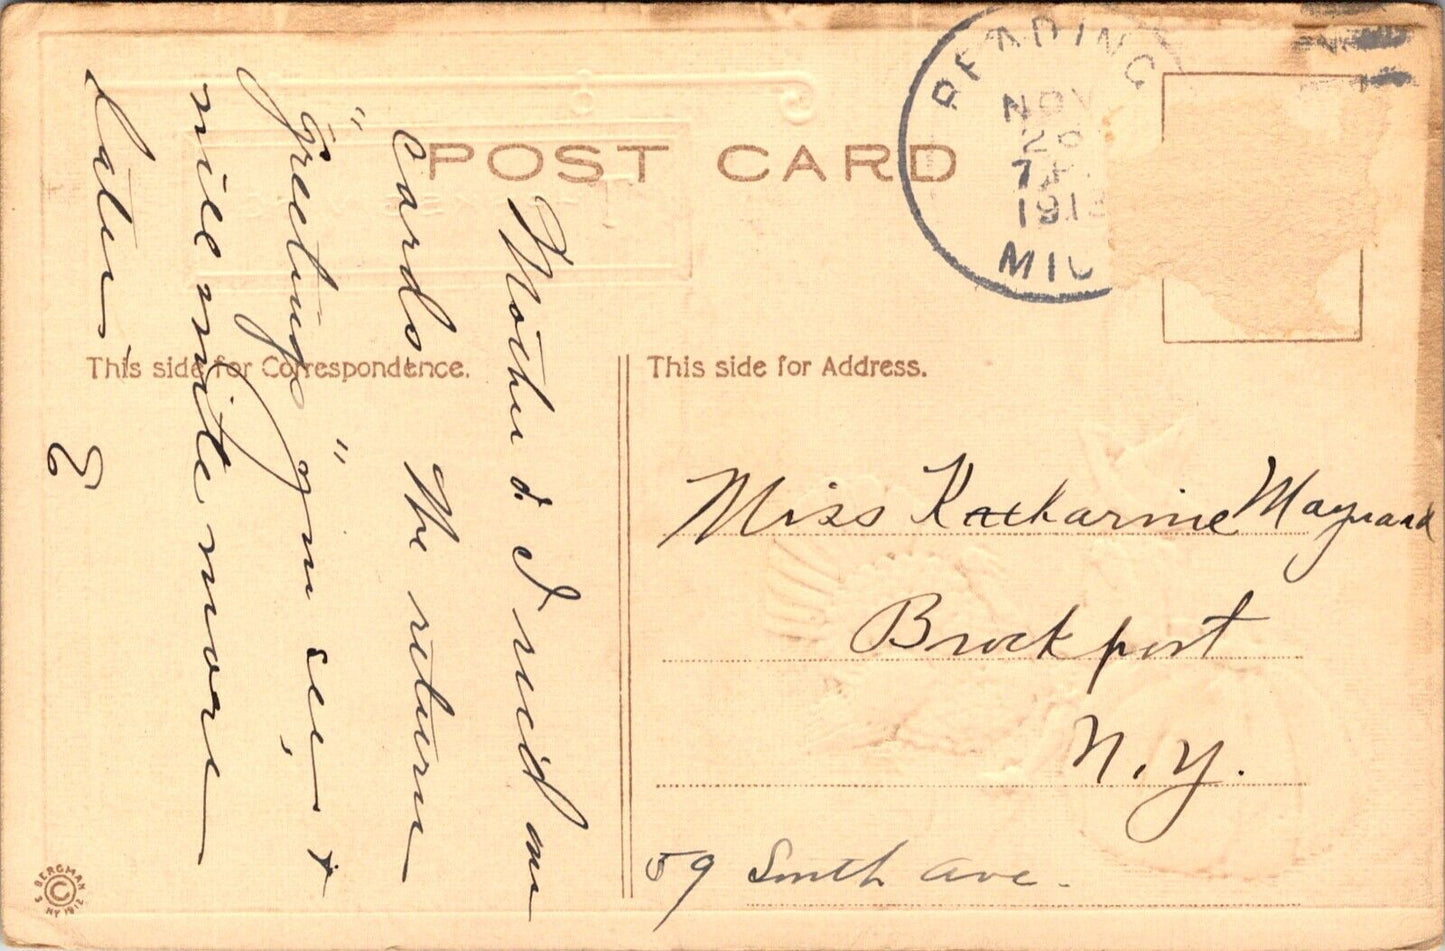 POST CARD
READING
NOV
26
7
1913
MIC
This side for Correspondence.
This side for Address.
Mother & I rec'd our
cards The return
"Greetings" given us, &
will write more
later,
E
Miss Katharine Maynard
Brockport
N.Y.
59 South Ave.
BERGMAN
©
NY 1912